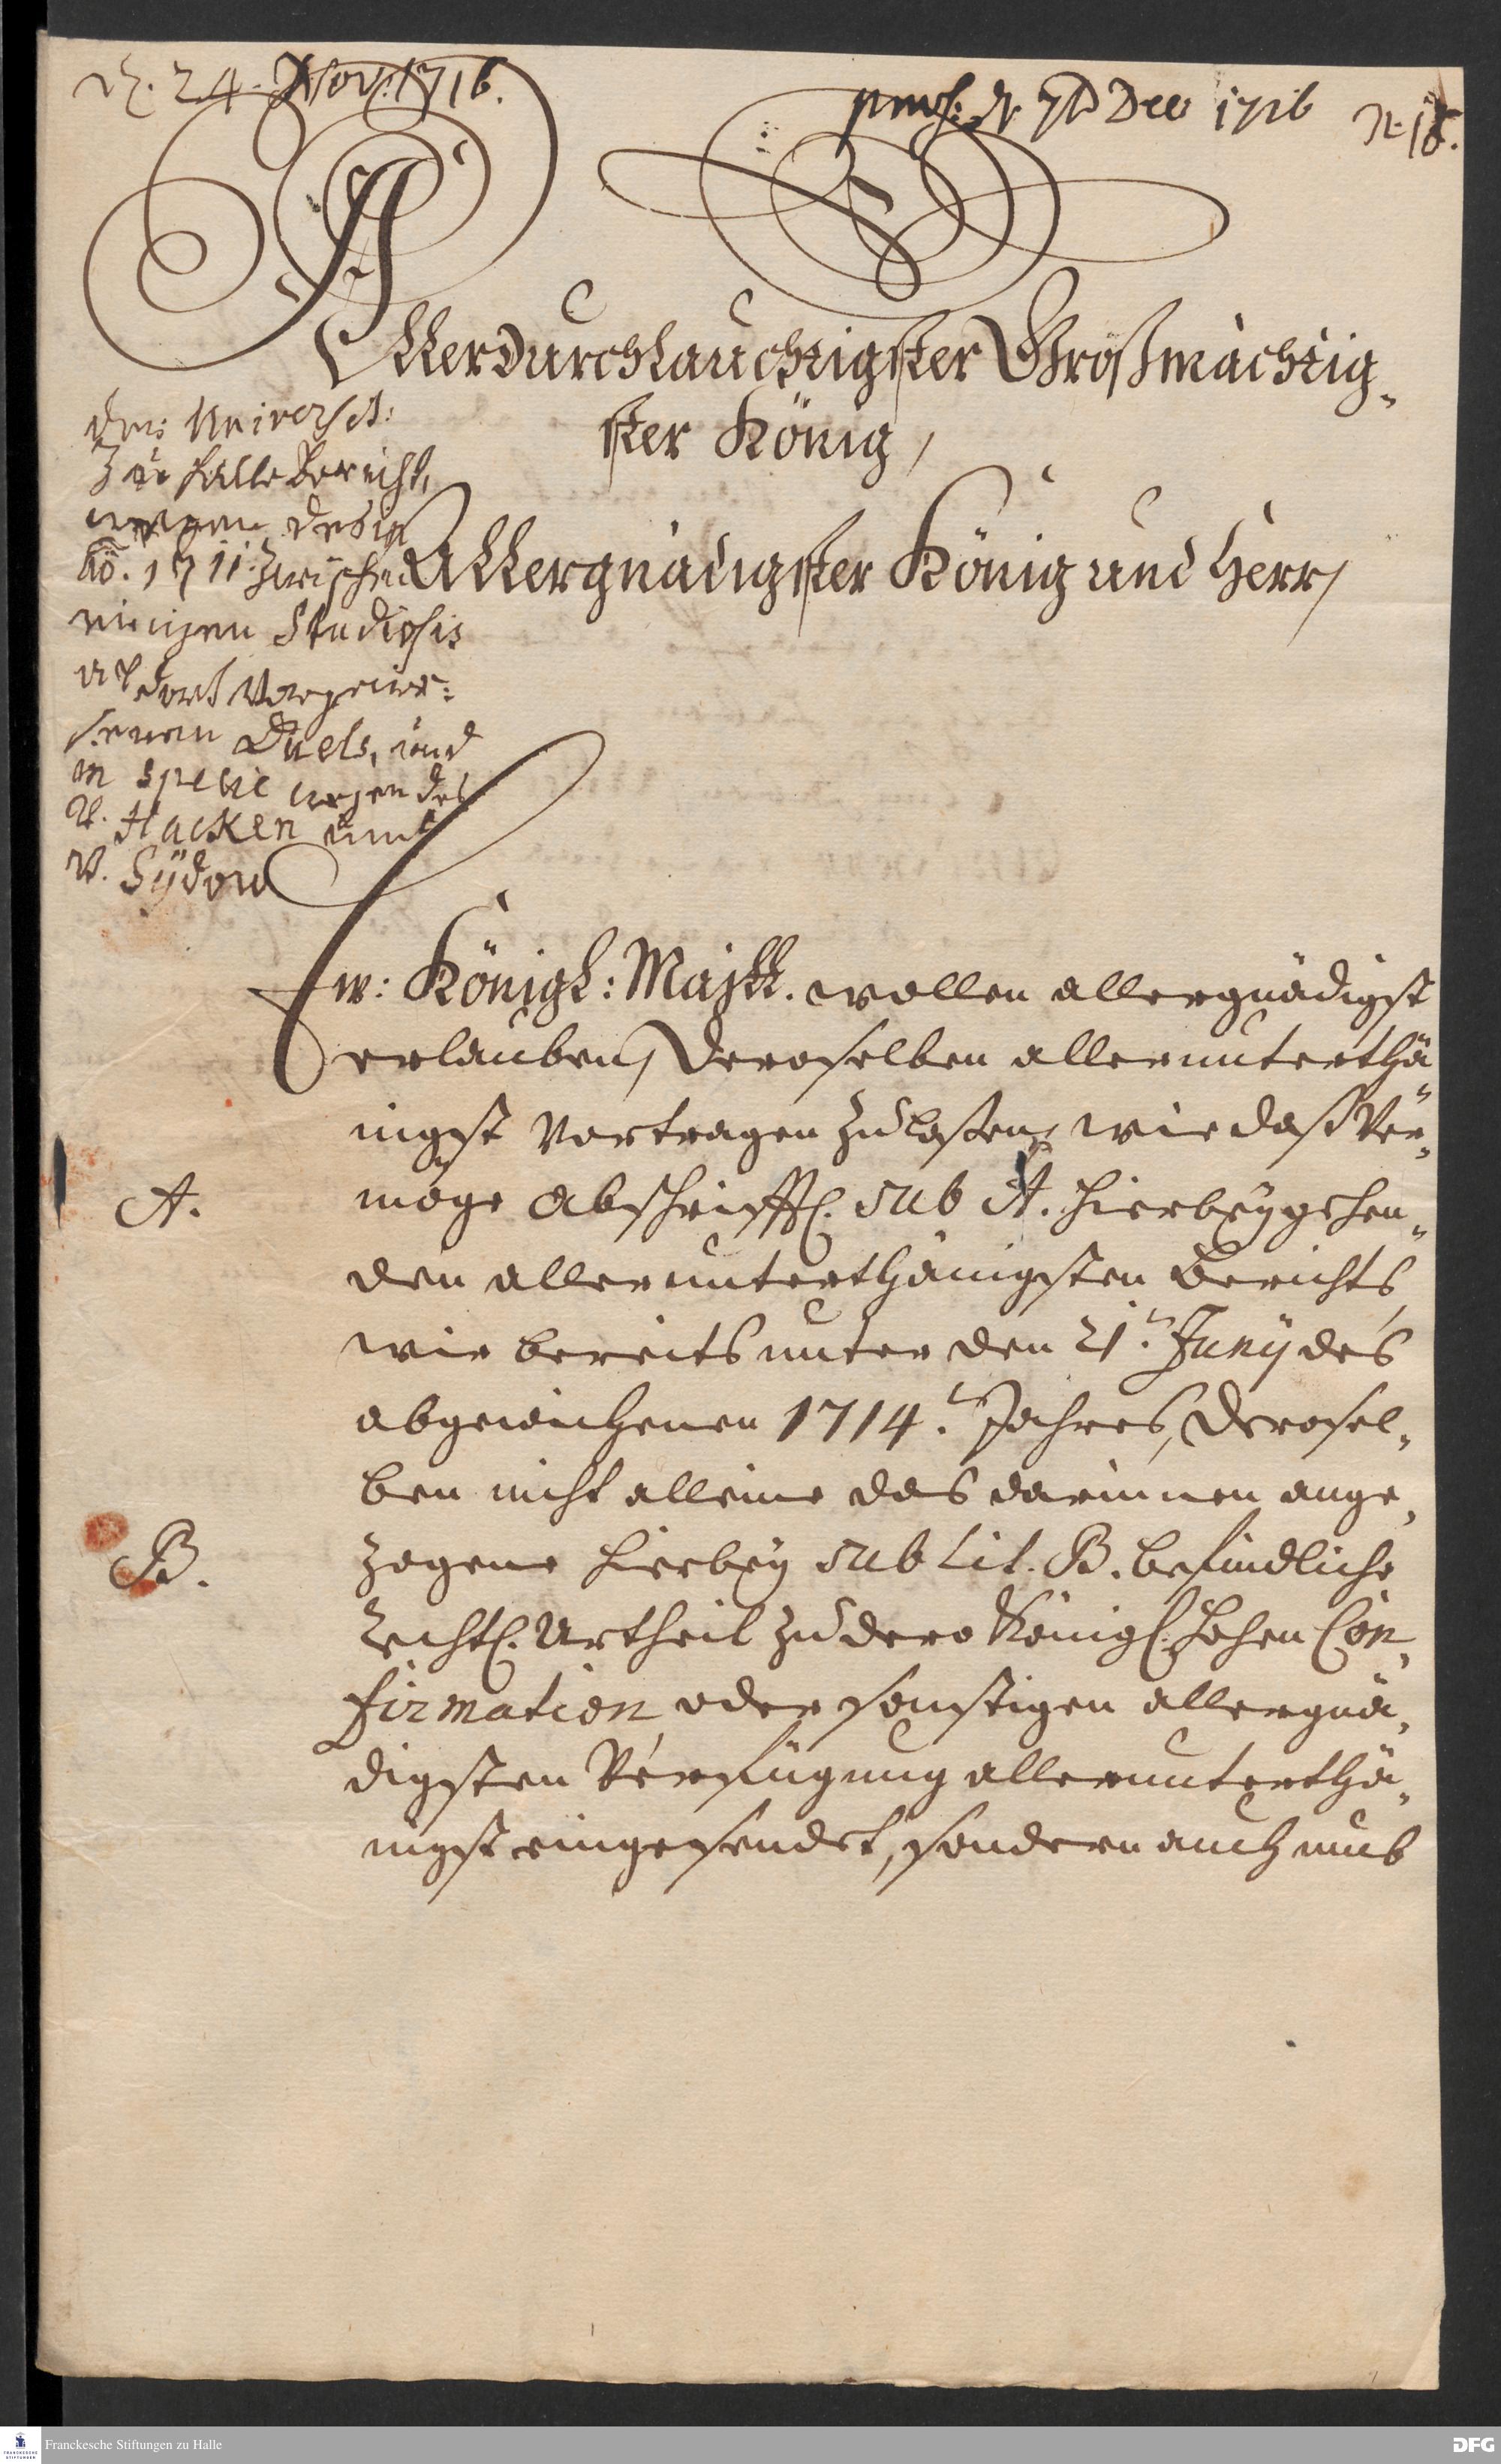 d. 24. Nov. 1716.
præs. d. 7t Dec 1716
N. 18.
Allerdurchlauchtigster Großmächtig-
ster König,
Allergnädigster König und Herr,
der Universit:
Zu Halle Bericht,
wegen derer
Ao. 1711. zwischen
einigen Studiosis
aldort vorgewe-
senen Duels, und
in specie wegen des
v. Hacken und
v. Sÿdow
Ew: Königl: Majtt. wollen allergnädigst
erlauben, Deroselben allerunterthä-
nigst vortragen zu laßen, wie daß Ver-
A.
möge Abschrifftl. sub A. hierbeÿgehen-
den allerunterthänigsten Berichts,
wir bereits unter den 21. Junÿ des
abgewichenen 1714. Jahres, Derosel-
ben nicht alleine das darinnen ange-
B.
zogene hierbeÿ sub Lit. B. befindliche
Rechtl. Urtheil zu dero Königl. hohen Con-
firmation, oder sonstigen allergnä-
digsten Verfügung allerunterthä-
nigst eingesendet, sondern auch umb
Franckesche Stiftungen zu Halle
DFG